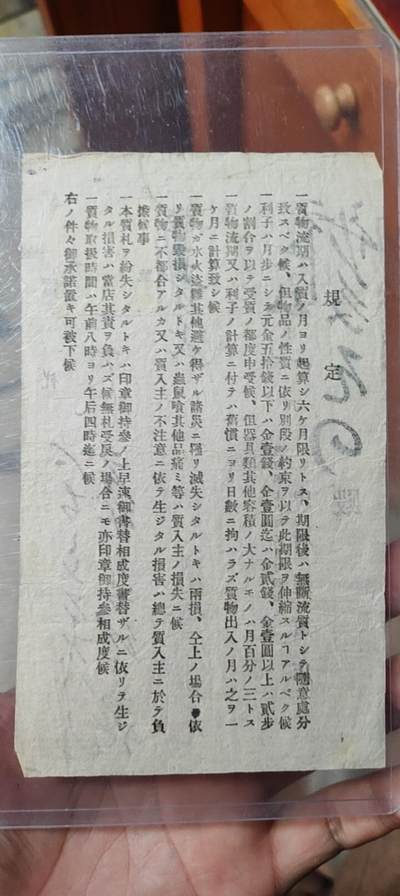 規定
一質物流期ハ入質ノ月ヨリ起算シ六ケ月限リトス、期限後ハ無斷流質トシテ隨意處分
致スベク候、但物品ノ性質ニ依リ別段ノ約束ヲ以テ此期限ヲ伸縮スルヿアルベク候
一利子ハ月步ニシテ元金五拾錢以下ハ金壹錢、金壹圓迄ハ金貳錢、金壹圓以上ハ貳步
ノ割合ヲ以テ受質ノ都度申受候、但器具類其他容積ノ大ナルモノハ月百分ノ三トス
一質物流期又ハ利子ノ計算ニ付テハ舊慣ニヨリ日數ニ拘ハラズ質物出入ノ月ハ之ヲ一
ケ月ニ計算致シ候
一質物ガ水火盜難其他避ケ得ザル諸災ニ罹リ滅失シタルトキハ兩損、仝上ノ場合ニ依
リ質物毀損シタルトキ又ハ蟲鼠喰其他品痛ミ等ハ質入主ノ損失ニ候
一質物ニ不都合アルカ又ハ質入主ノ不注意ニ依テ生ジタル損害ハ總テ質入主ニ於テ負
擔候事
一本質札ヲ紛失シタルトキハ印章御持參ノ上早速御書替相成度書替ザルニ依リテ生ジ
タル損害ハ當店其責ヲ負ハズ候無札受戾ノ場合ニモ亦印章御持參相成度候
一質物取扱時間ハ午前八時ヨリ午后四時迄ニ候
右ノ件々御承諾置キ可被下候
殿